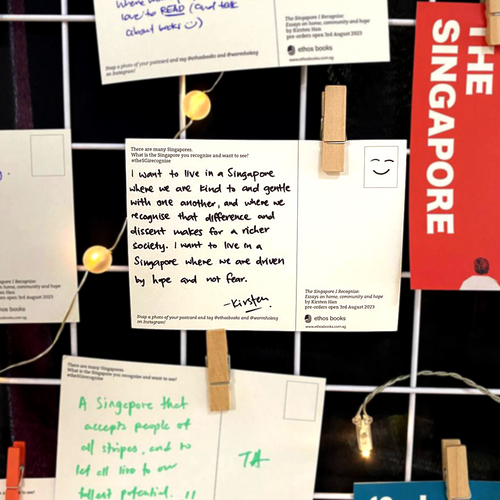 love to READ (and talk
about books ☺)
Snap a photo of your postcard and tag @ethosbooks and @warmbooksg
on Instagram!
The Singapore I Recognise:
Essays on home, community and hope
by Kirsten Han
pre-orders open 3rd August 2023
ethos books
www.ethosbooks.com.sg
THE
SINGAPORE
There are many Singapores.
What is the Singapore you recognise and want to see?
#theSGIrecognise
I want to live in a Singapore
where we are kind to and gentle
with one another, and where we
recognise that difference and
dissent makes for a richer
society. I want to live in a
Singapore where we are driven
by hope and not fear.
-Kirsten.
Snap a photo of your postcard and tag @ethosbooks and
on Instagram!
The Singapore I Recognise:
Essays on home, community and hope
by Kirsten Han
pre-orders open 3rd August 2023
ethos books
www.ethosbooks.com.sg
There are many Singapores.
What is the Singapore you recognise and want to see?
#theSGIrecognise
A Singapore that
accepts people of
all stripes, and to
let all live to our
fullest potential. !!
TA